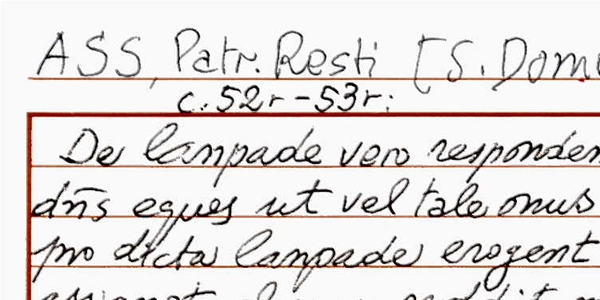 ASS, Patr. Resti [S. Dom
c. 52r-53r:
De lanpade vero responden
dñs eques ut vel tale onus
pro dicta lanpade erogent